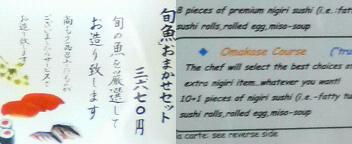 旬魚おまかせセット
三六七〇円
旬の魚を厳選して
お造り致します
8 pieces of premium nigiri sushi (i.e.:fat
sushi rolls,rolled egg,miso-soup
Omakase Course ("tru
The chef will select the best choices a
extra nigiri item...whatever you want!
10+1 pieces of nigiri sushi (i.e.:-fatty tu
sushi rolls,rolled egg,miso-soup
a carte: see reverse side